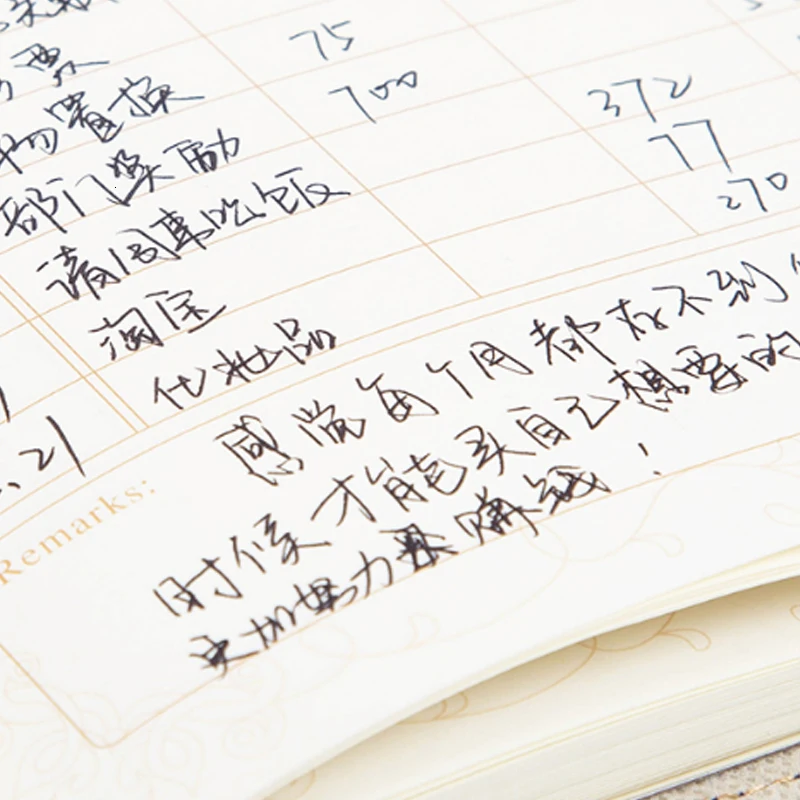 票 75
物置换 700
部门奖励 372
请同事吃饭 77
淘宝 270
化妆品
21
Remarks:
感觉每个月都存不到
时候才能买自己想要的
更加努力 赚钱！